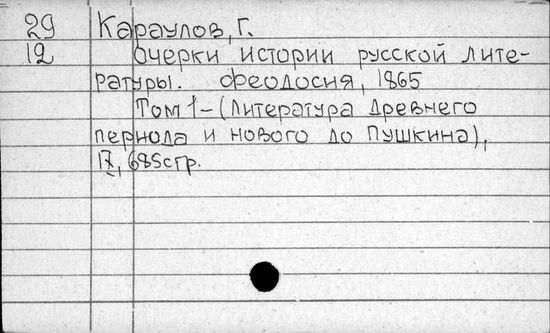 29 Караулов, Г.
12 Очерки истории русской лите-
ратуры. Феодосия, 1865
Том 1-(Литература древнего
периода и нового до Пушкина),
IX, 685стр.